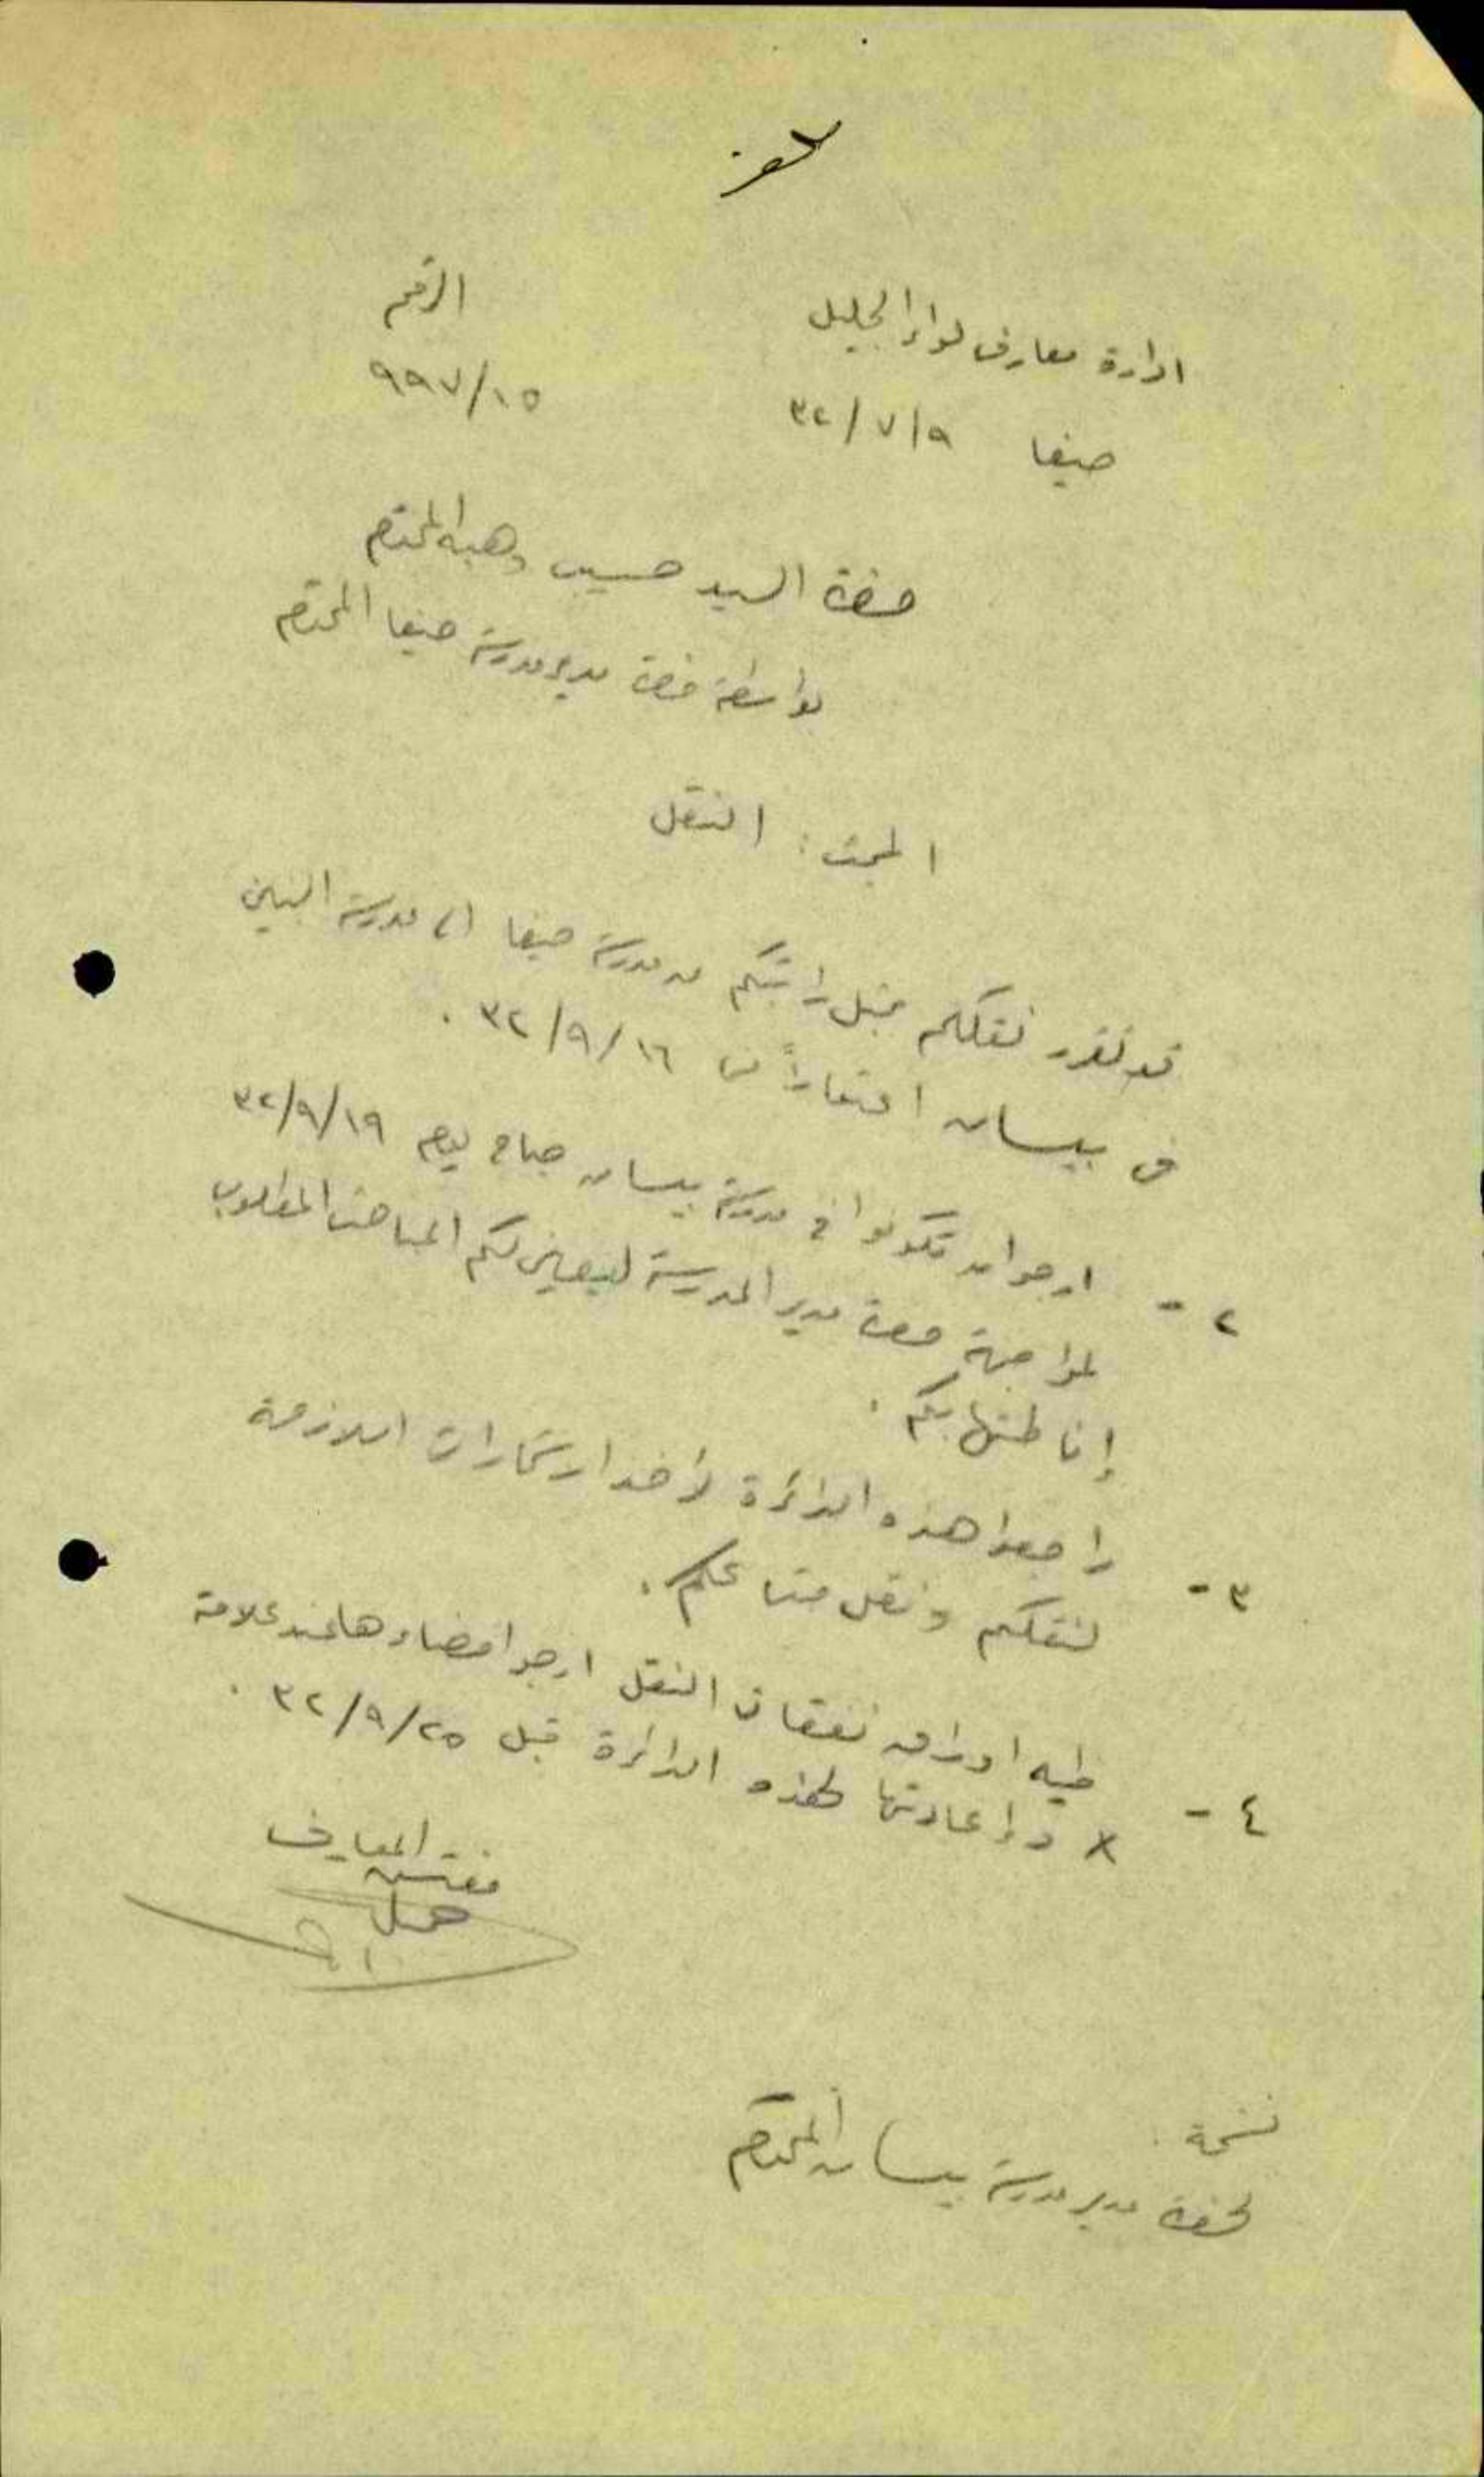 ادارة معارف لواء الجليل
الرقم
حيفا ٣٢/٧/٩
٩٩٧/١٥
حضرة السيد حسين وهبه المحترم
بواسطة حضرة مدير مدرسة حيفا المحترم
المبحث : النقل
قد تقرر نقلكم بمثل راتبكم من مدرسة حيفا الى مدرسة البنين
في بيسان اعتباراً من ٣٢/٩/١٦ .
٢ - ارجو ان تكونوا في مدرسة بيسان صباح يوم ٣٢/٩/١٩
لمواجهة حضرة مدير المدرسة ليعين لكم المباحث المطلوب
إناطتها بكم .
٣ - راجعوا هذه الدائرة لأخذ استمارات اللازمة
لنقلكم ونقل متاعكم .
٤ - طيه اوراق نفقات النقل ارجو امضاءها عند علامة
x وإعادتها لهذه الدائرة قبل ٣٢/٩/٢٥ .
مفتش المعارف
نسخة :
لحضرة مدير مدرسة بيسان المحترم